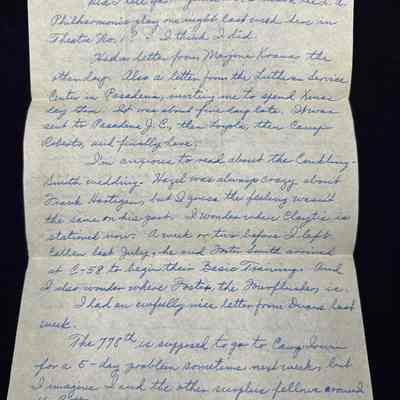 Philharmonic play one night last week here in
Theatre No. 1? I think I did.
Had a letter from Marjorie Kramer the
other day. Also a letter from the Lutheran Service
Center in Pasadena, inviting me to spend Xmas
day there. It was about five days late. It was
sent to Pasadena J.C., then Loyola, then Camp
Roberts, and finally here.
I'm anxious to read about the
Smith wedding. Hazel was always crazy about
Frank, but I guess the feeling wasn't
the same on his part. I wonder where is
stationed now. A week or two before I left
Callan last July, he and Foster Smith arrived
at C-58 to begin their Basic Training. And
I also wonder where Foster, the, is.
I had an awfully nice letter from Duane last
week.
The 778th is supposed to go to Camp Irwin
for a 5-day problem sometime next week, but
I imagine I and the other surplus fellows around